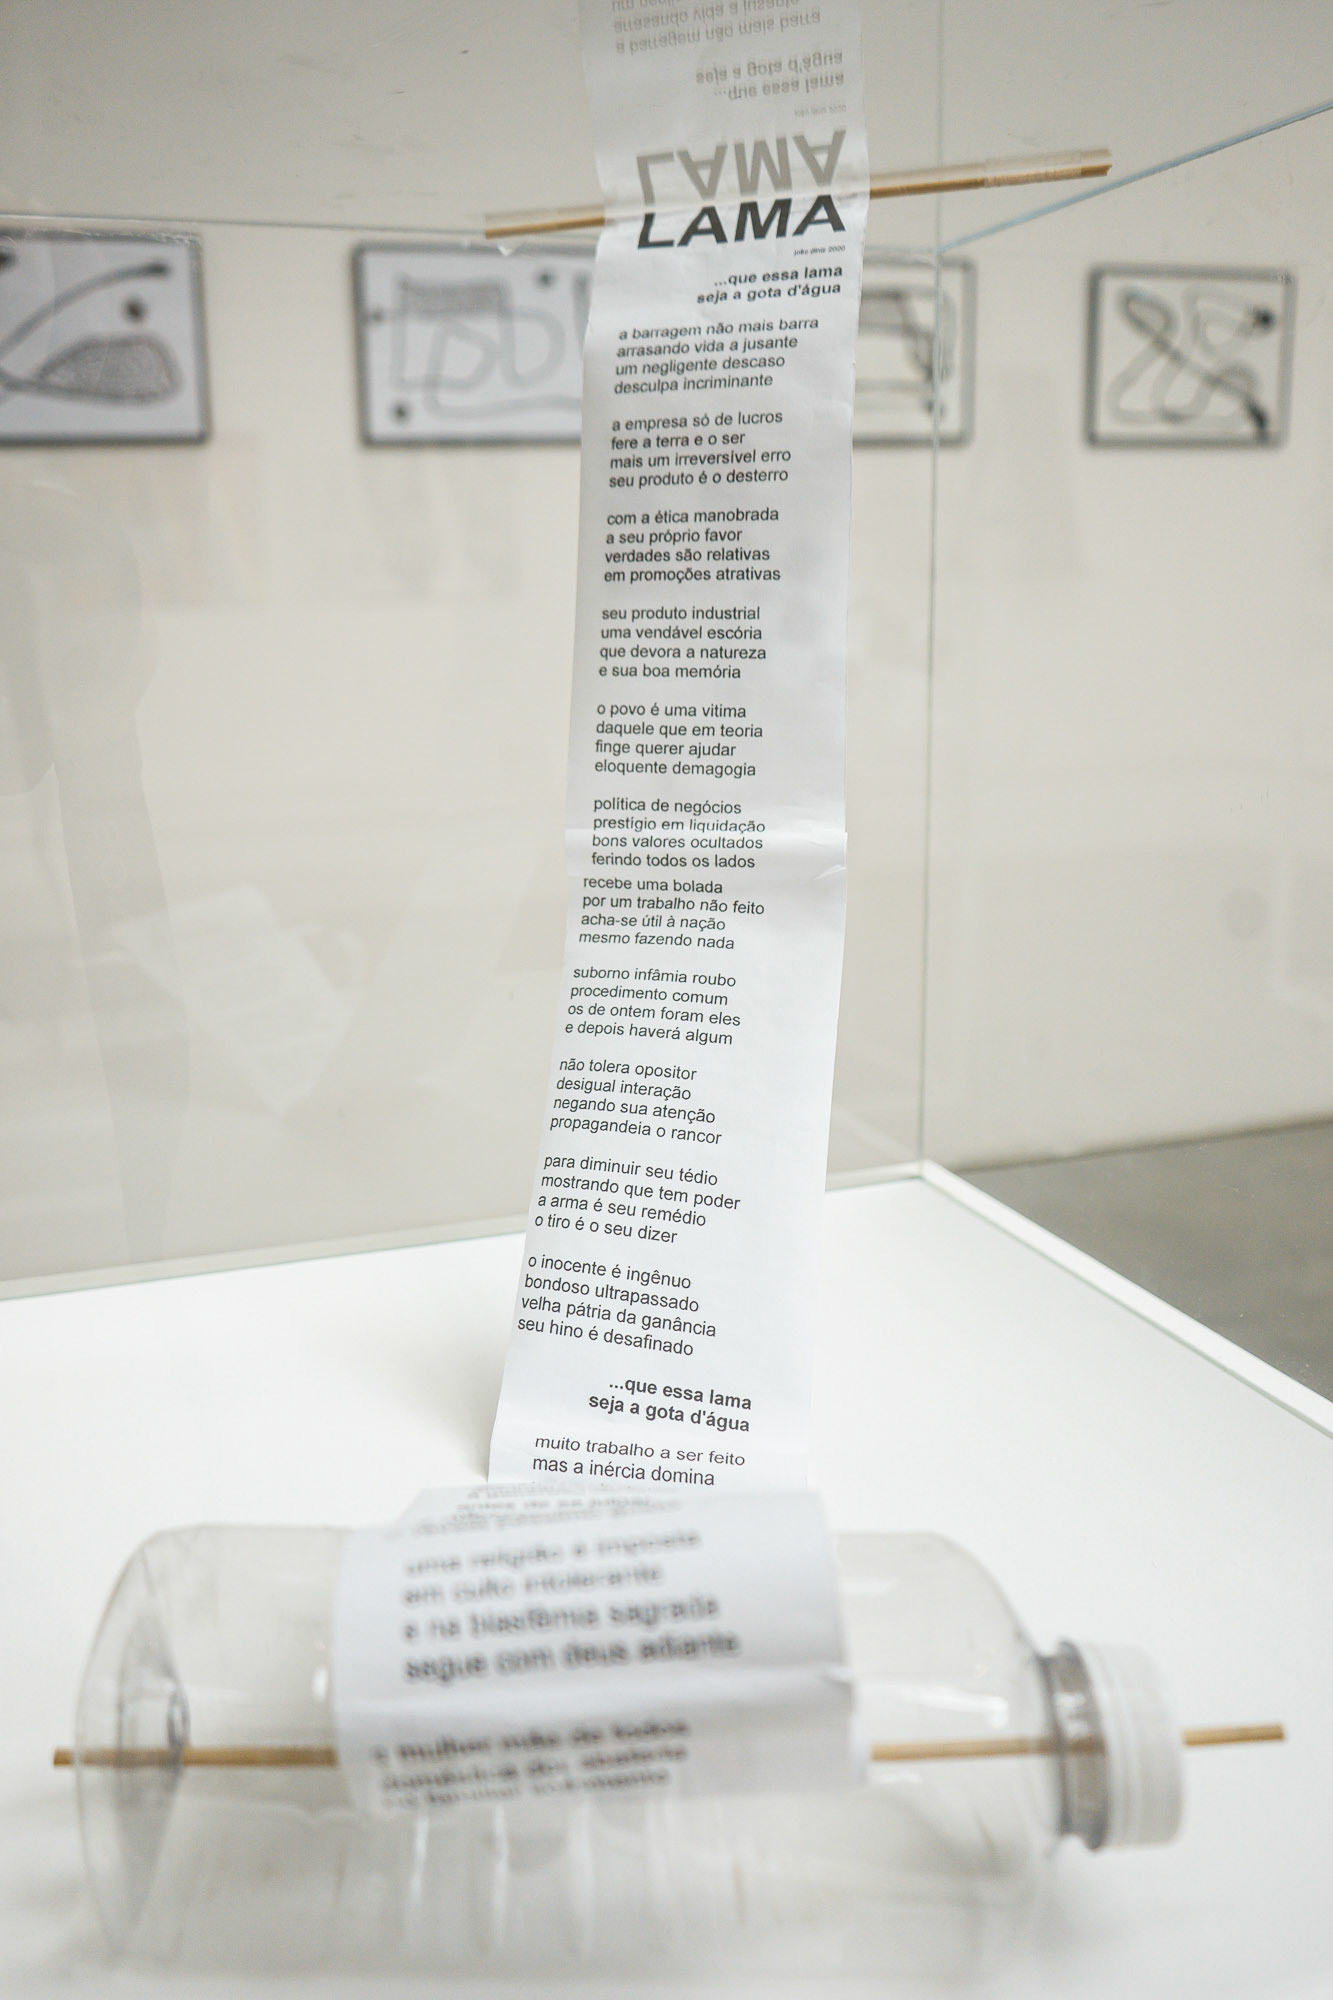 LAMA
joão diniz 2020
...que essa lama
seja a gota d'água
a barragem não mais barra
arrasando vida a jusante
um negligente descaso
desculpa incriminante
a empresa só de lucros
fere a terra e o ser
mais um irreversível erro
seu produto é o desterro
com a ética manobrada
a seu próprio favor
verdades são relativas
em promoções atrativas
seu produto industrial
uma vendável escória
que devora a natureza
e sua boa memória
o povo é uma vitima
daquele que em teoria
finge querer ajudar
eloquente demagogia
política de negócios
prestígio em liquidação
bons valores ocultados
ferindo todos os lados
recebe uma bolada
por um trabalho não feito
acha-se útil à nação
mesmo fazendo nada
suborno infâmia roubo
procedimento comum
os de ontem foram eles
e depois haverá algum
não tolera opositor
desigual interação
negando sua atenção
propagandeia o rancor
para diminuir seu tédio
mostrando que tem poder
a arma é seu remédio
o tiro é o seu dizer
o inocente é ingênuo
bondoso ultrapassado
velha pátria da ganância
seu hino é desafinado
...que essa lama
seja a gota d'água
muito trabalho a ser feito
mas a inércia domina
uma religião é imposta
em culto intolerante
e na blasfêmia sagrada
segue com deus adiante
a mulher mãe de todos